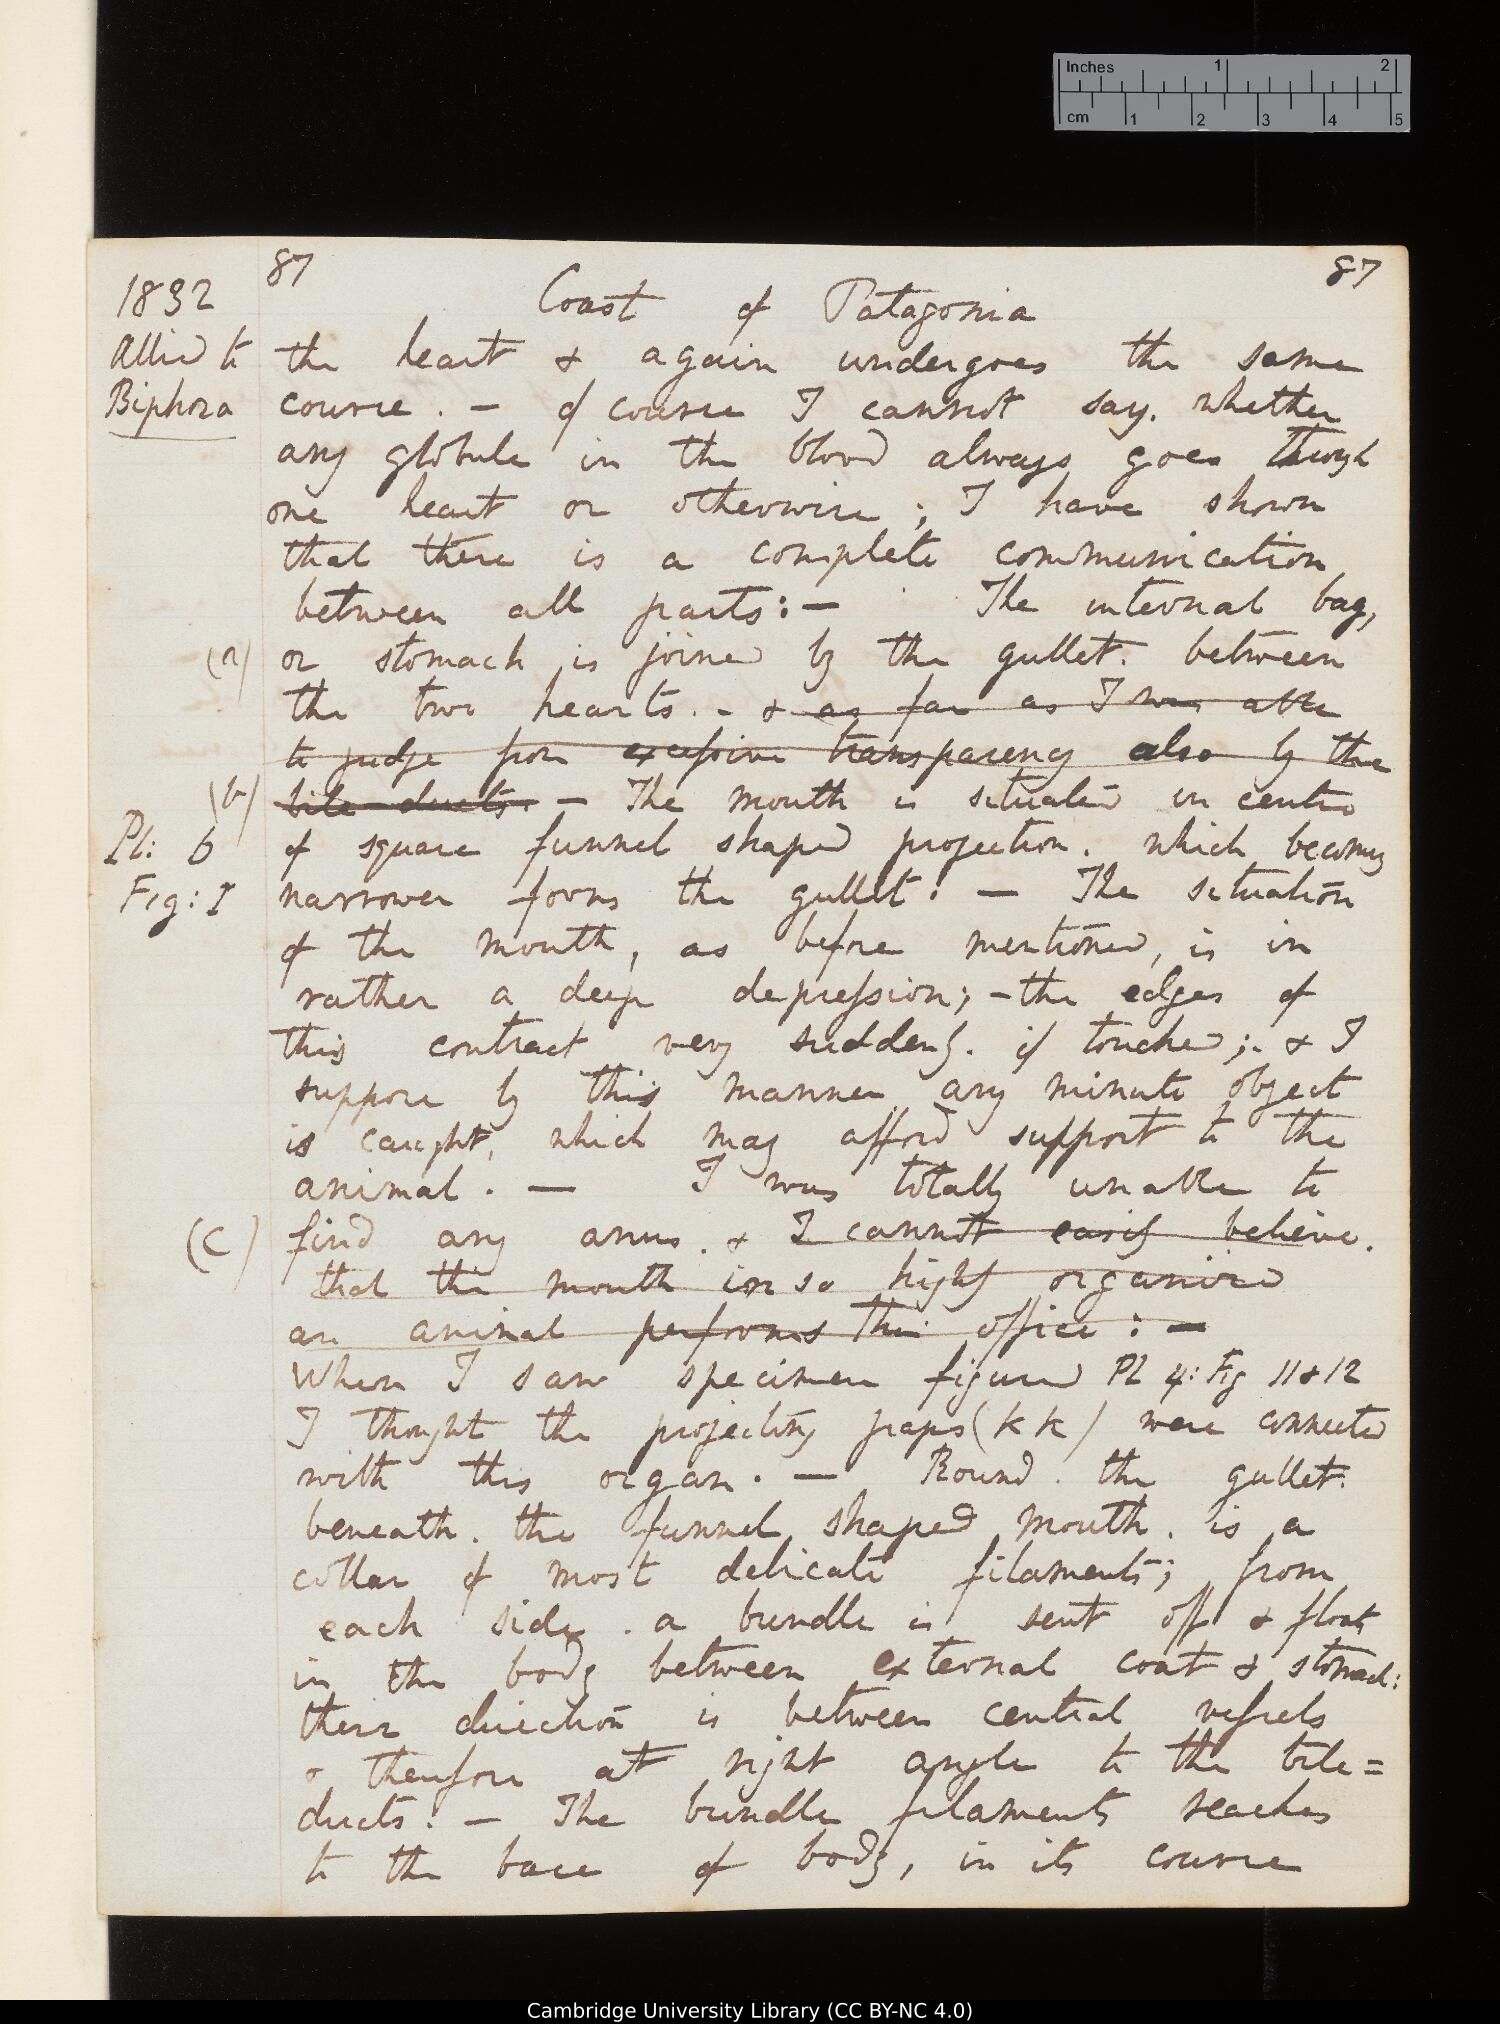 Inches 1 2
cm 1 2 3 4 5
87 87
1832 Coast of Patagonia
Allied to the heart & again undergoes the same
Biphora course. — of course I cannot say. whether
any globule in the blood always goes through
one heart or otherwise; I have shown
that there is a complete communication
between all parts: — The internal bag,
(a) or stomach is joined by the gullet. between
the two hearts. - & as far as I was able
to judge from excessive transparency also by the
(b) bile ducts. — The mouth is situated in centre
Pl: 6 of square funnel shaped projection. which becoming
Fig: I narrower forms the gullet: — The situation
of the mouth, as before mentioned, is in
rather a deep depression; - the edges of
this contract very suddenly. if touched; & I
suppose by this manner any minute object
is caught, which may afford support to the
animal. — I was totally unable to
(c) find any anus. & I cannot easily believe.
that the mouth in so highly organised
an animal performs this office: —
When I saw specimen figured Pl 4: Fig 11 & 12
I thought the projecting paps (k k) were connected
with this organ. — Round. the gullet.
beneath. the funnel shaped mouth. is a
collar of most delicate filaments; from
each side. a bundle is sent off & floats
in the body between external coat & stomach:
their direction is between central vessels
& therefore at right angle to the bile=
ducts. — The bundle filaments reaches
to the base of body, in its course
Cambridge University Library (CC BY-NC 4.0)